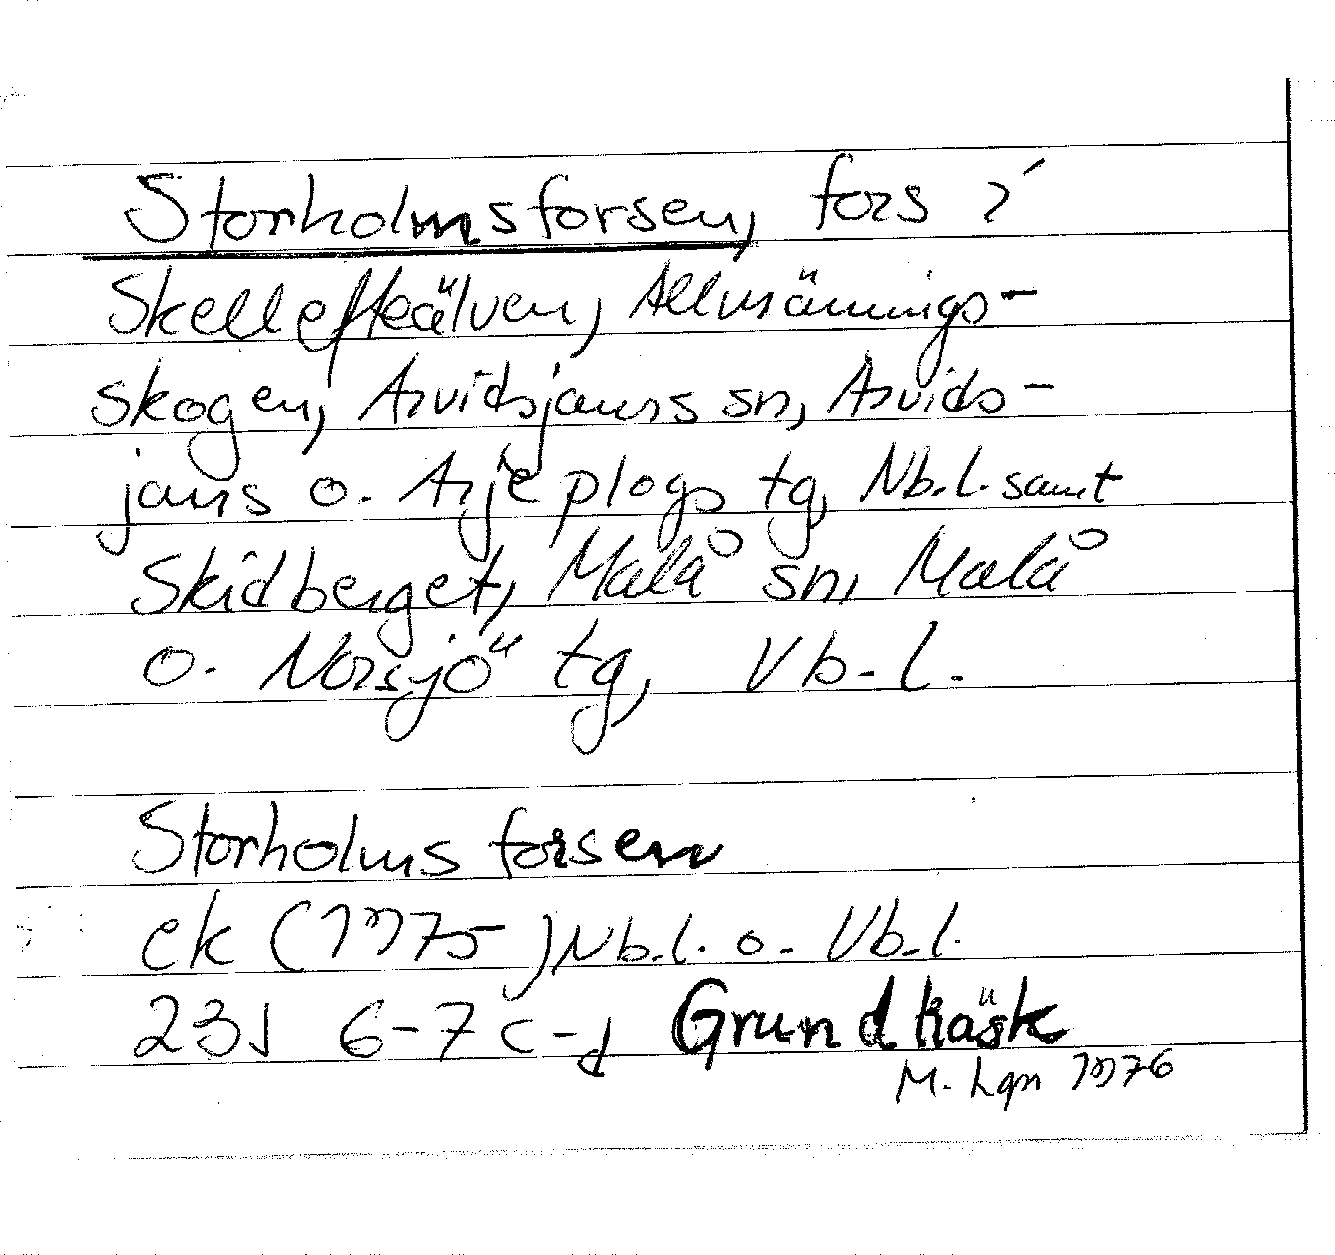 Storholmsforsen, fors i
Skellefteälven, Allmännings-
skogen, Arvidsjaurs sn, Arvids-
jaurs o. Arjeplogs tg, Nb.l. samt
Skidberget, Malå sn, Malå
o. Norsjö tg, Vb.l.
Storholmsforsen
ek (1975) Nb.l. o. Vb.l.
23J 6-7 c-d Grundträsk
M. Lgn 1976